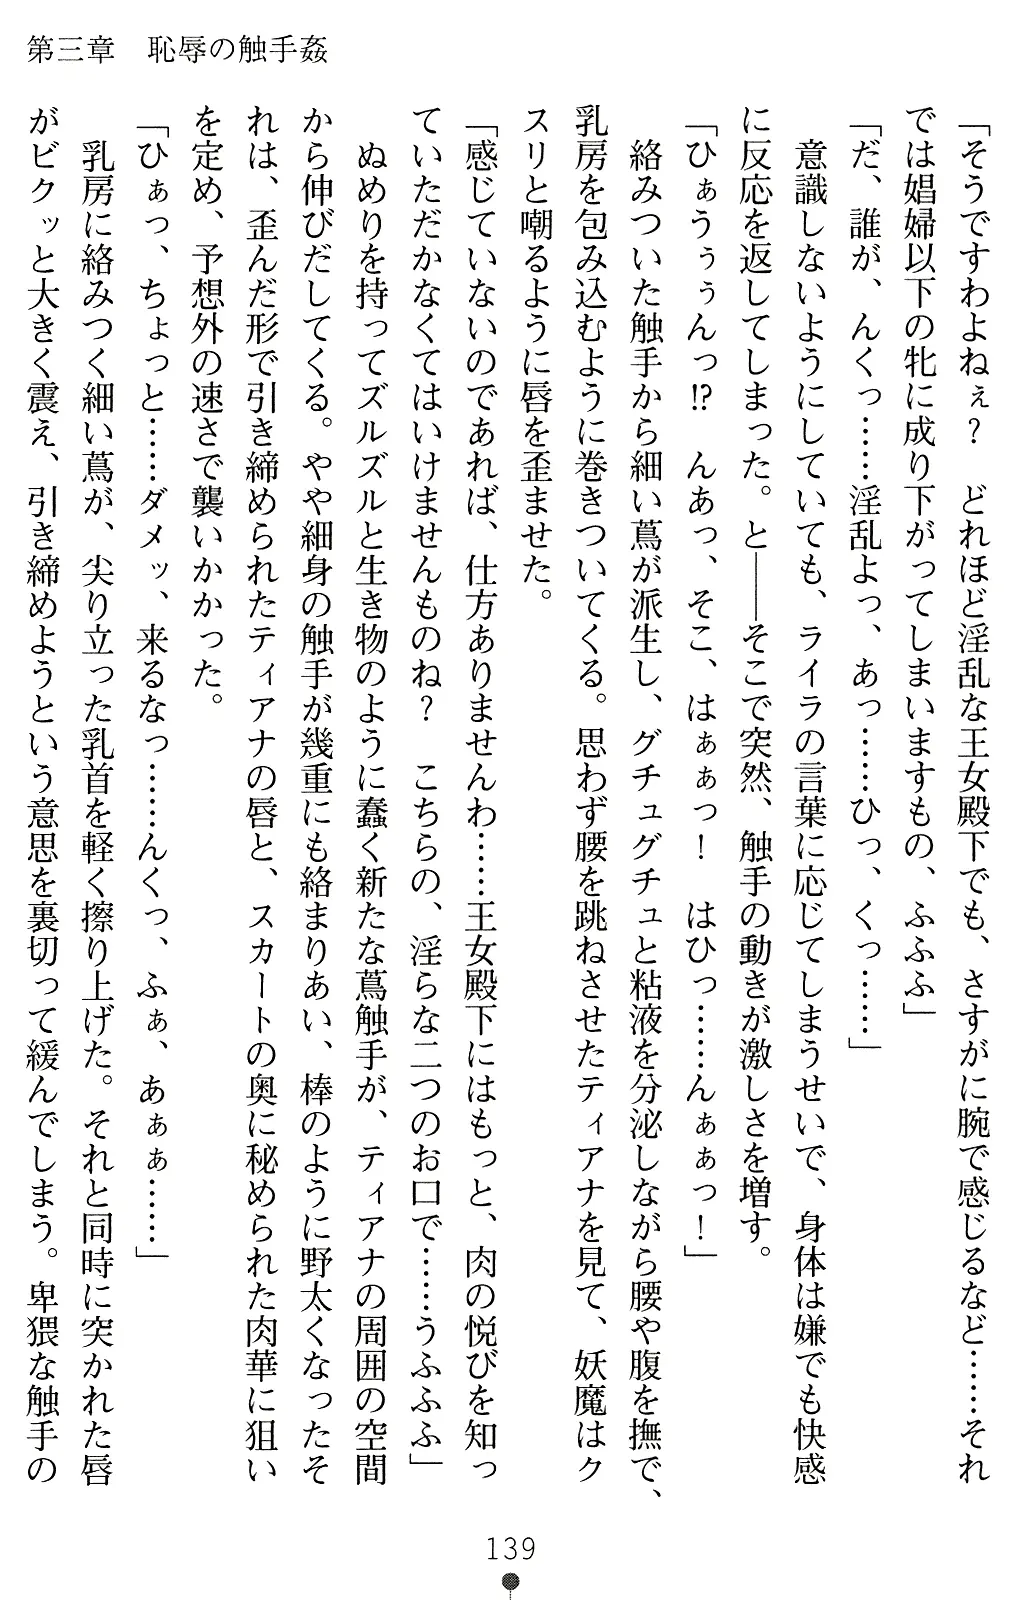 第三章　恥辱の触手姦
「そうですわよねぇ？　どれほど淫乱な王女殿下でも、さすがに腕で感じるなど……それ
では娼婦以下の牝に成り下がってしまいますもの、ふふふ」
「だ、誰が、んくっ……淫乱よっ、あっ……ひっ、くっ……」
　意識しないようにしていても、ライラの言葉に応じてしまうせいで、身体は嫌でも快感
に反応を返してしまった。と――そこで突然、触手の動きが激しさを増す。
「ひぁうぅぅんっ!?　んあっ、そこ、はぁぁっ！　はひっ……んぁぁっ！」
　絡みついた触手から細い蔦が派生し、グチュグチュと粘液を分泌しながら腰や腹を撫で、
乳房を包み込むように巻きついてくる。思わず腰を跳ねさせたティアナを見て、妖魔はク
スリと嘲るように唇を歪ませた。
「感じていないのであれば、仕方ありませんわ……王女殿下にはもっと、肉の悦びを知っ
ていただかなくてはいけませんものね？　こちらの、淫らな二つのお口で……うふふふ」
　ぬめりを持ってズルズルと生き物のように蠢く新たな蔦触手が、ティアナの周囲の空間
から伸びだしてくる。やや細身の触手が幾重にも絡まりあい、棒のように野太くなったそ
れは、歪んだ形で引き締められたティアナの唇と、スカートの奥に秘められた肉華に狙い
を定め、予想外の速さで襲いかかった。
「ひぁっ、ちょっと……ダメッ、来るなっ……んくっ、ふぁ、あぁぁ……」
　乳房に絡みつく細い蔦が、尖り立った乳首を軽く擦り上げた。それと同時に突かれた唇
がビクッと大きく震え、引き締めようという意思を裏切って緩んでしまう。卑猥な触手の
139